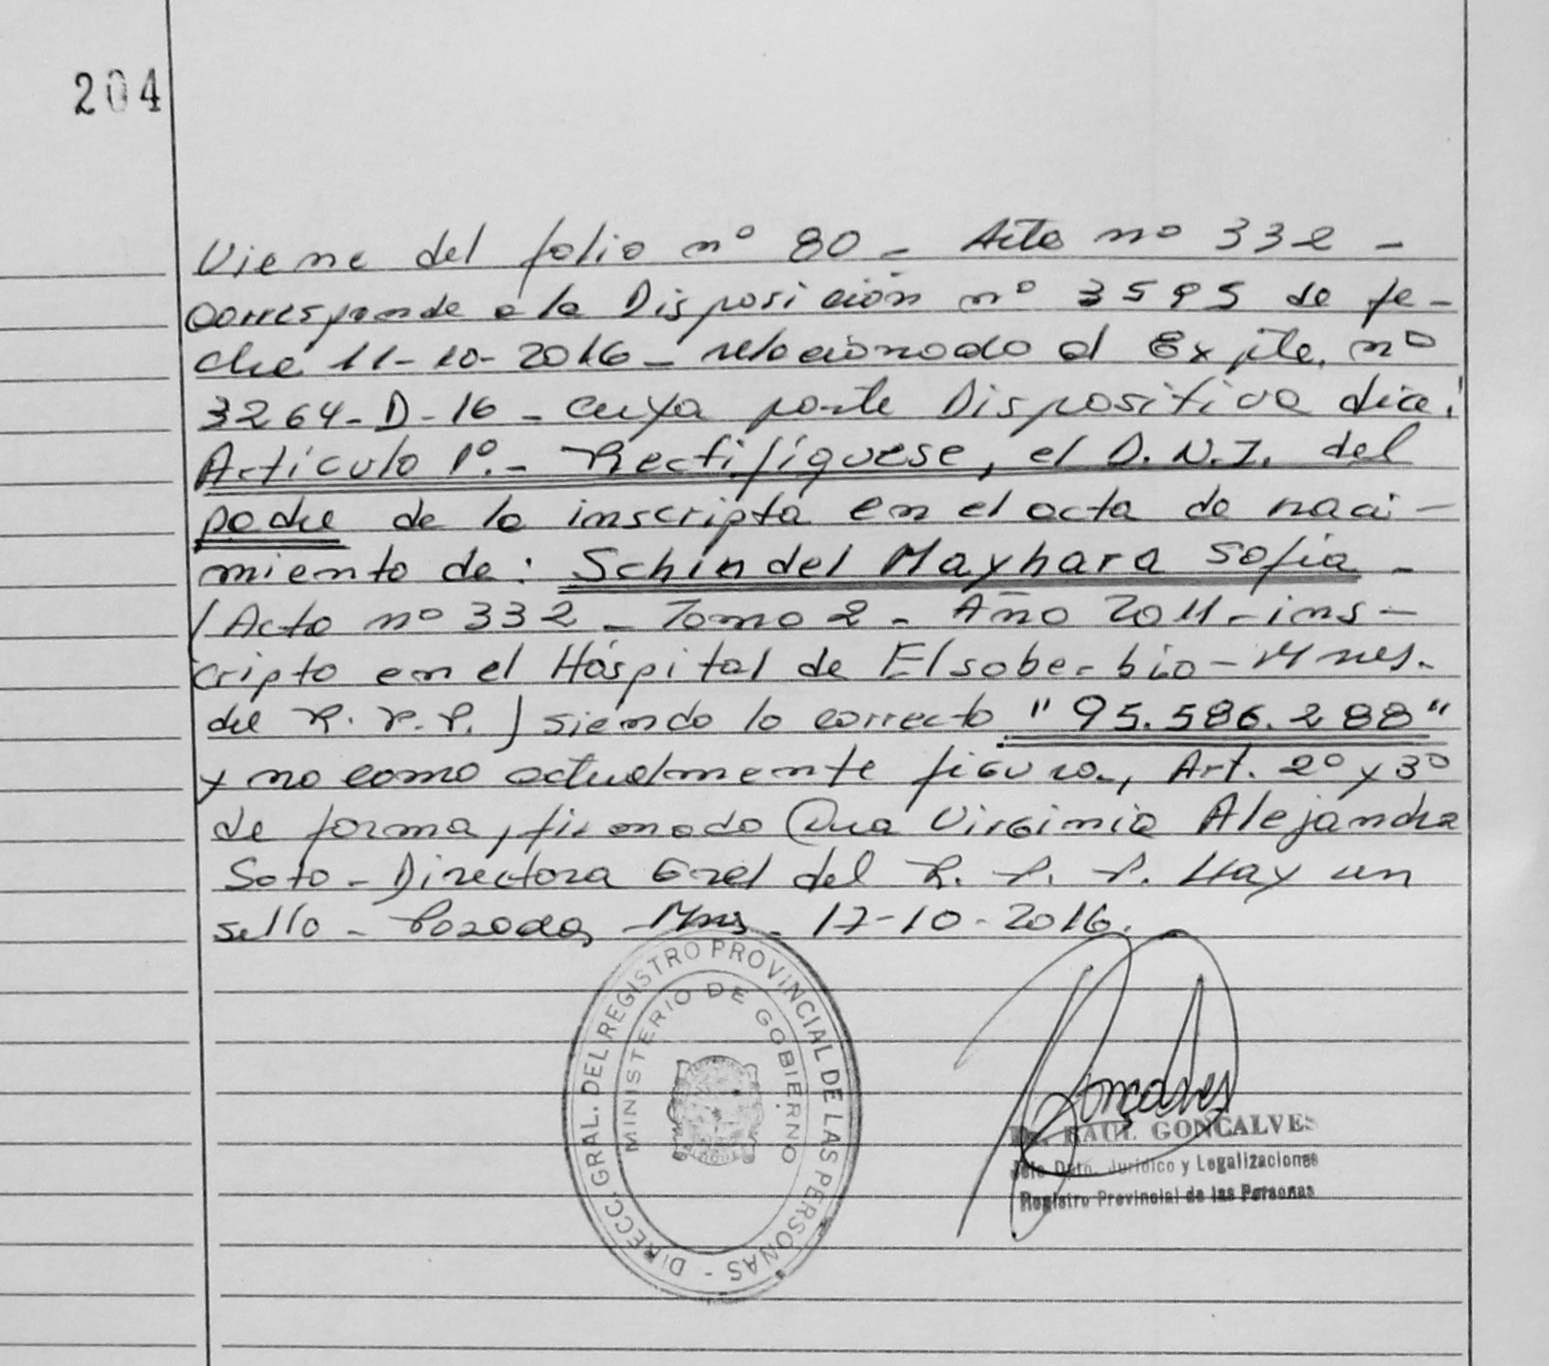 204
Viene del folio nº 80 - Acta nº 332 -
corresponde a la Disposición nº 3595 de fe-
cha 11-10-2016 - relacionado al Expte. nº
3264-D-16 - cuya parte Dispositiva dice:
Artículo 1º.- Rectifíquese, el D.N.I. del
padre de la inscripta en el acta de naci-
miento de: Schindel Mayhara Sofia -
(Acta nº 332 - Tomo 2 - Año 2011 - ins-
cripta en el Hospital de El soberbio - Mnes.
del R.P.P.) siendo lo correcto "95.586.288"
y no como actualmente figura, Art. 2º y 3º
de forma, firmado Dra Virginia Alejandra
Soto - Directora Gral del R. P. P. Hay un
sello - Posadas, Mnes - 17-10-2016.
DIRECC. GRAL. DEL REGISTRO PROVINCIAL DE LAS PERSONAS -
MINISTERIO DE GOBIERNO
Gonçalves
Dr. RAUL GONCALVES
Jefe Dpto. Jurídico y Legalizaciones
Registro Provincial de las Personas